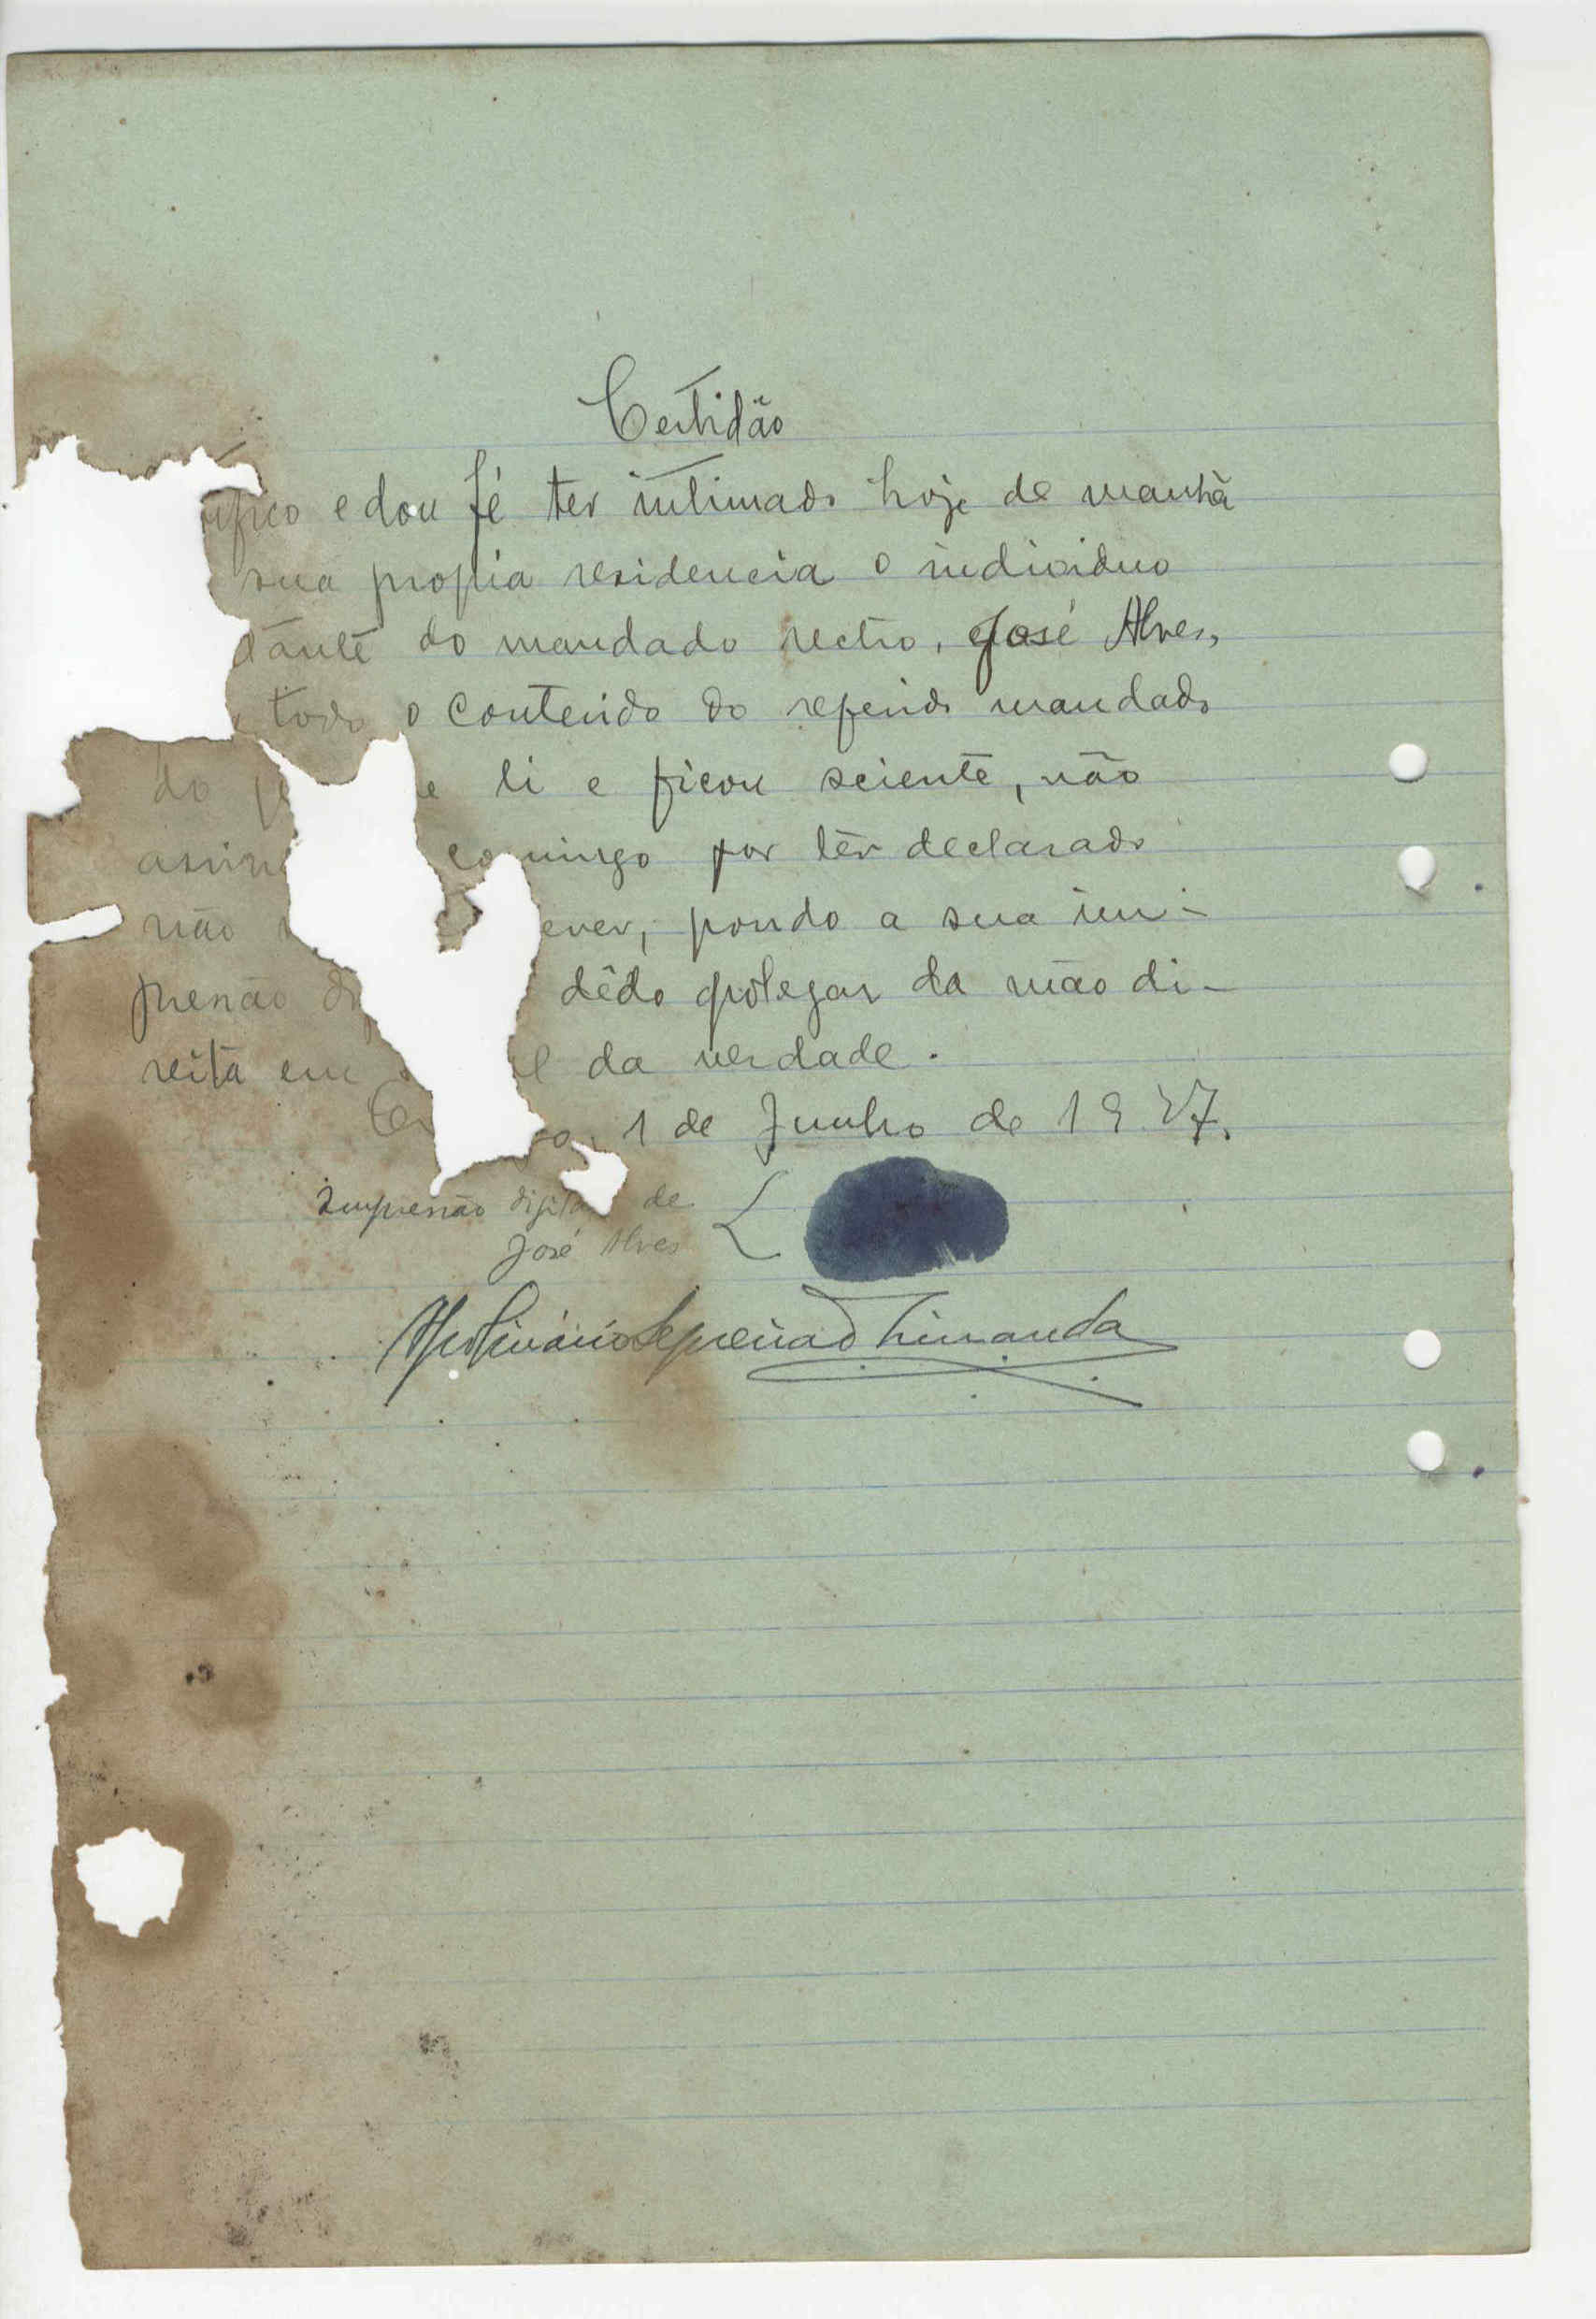 Certidão
e dou fé ter intimado hoje de manhã
sua propia residencia o individuo
do mandado rectro, José Alves,
todo o conteudo do referido mandado
do li e ficou sciente, não
comingo por têr declarado
não pondo a sua im-
prenão dêdo polegar da mão di-
reita em da verdade.
1 de Junho de 1927.
Imprenão digital de
José Alves